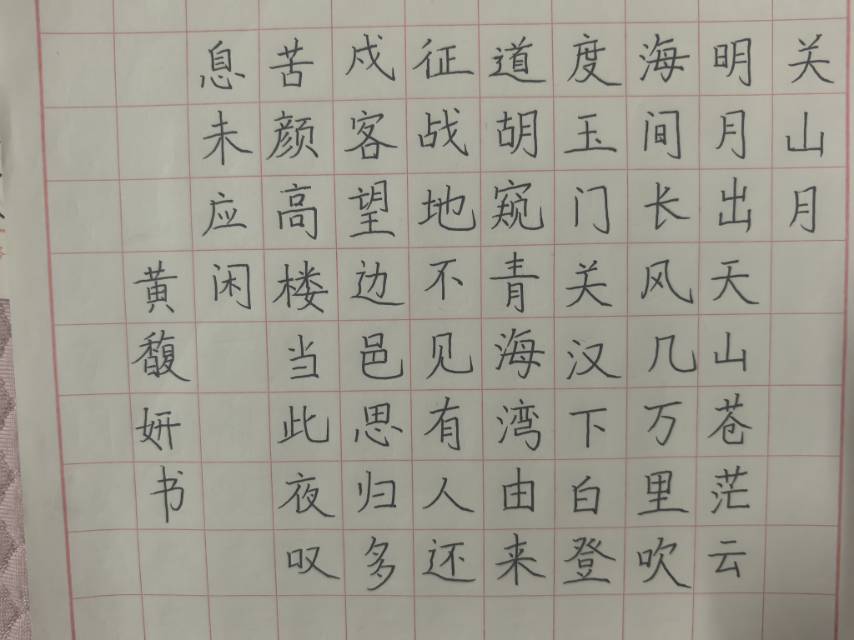 关山月
明月出天山苍茫云
海间长风几万里吹
度玉门关汉下白登
道胡窥青海湾由来
征战地不见有人还
戍客望边邑思归多
苦颜高楼当此夜叹
息未应闲
黄馥妍书